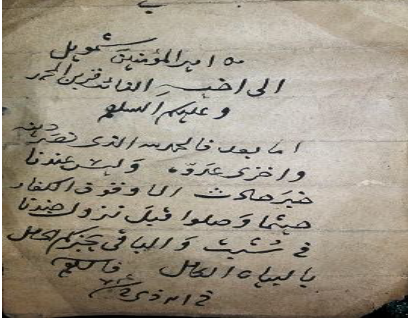 من امير المؤمنين شمويل
الى اخيه القائد قزبن المحمد
وعليكم السلام
اما بعد فالحمد لله الذى نصر دينه
واخزى عدوه وليس عندنا
خبر حادث الا وقوف الكفار
حيثما وصلوا قبل نزول جندنا
فى شبت والباقى يخبركم الحامل
بالبيان الكامل والسلام
فى